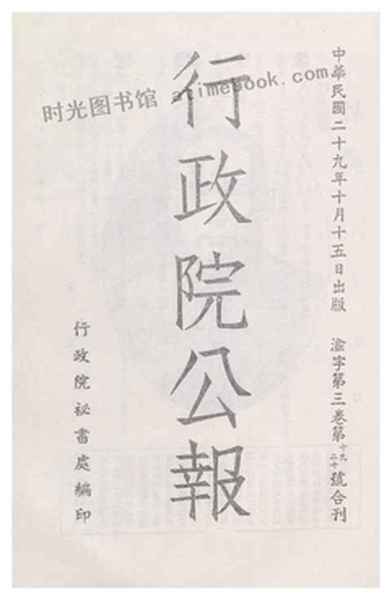 中華民國二十九年十月十五日出版 渝字第三卷第十九二十號合刊
行政院公報
行政院祕書處編印
时光图书馆 atimebook.com